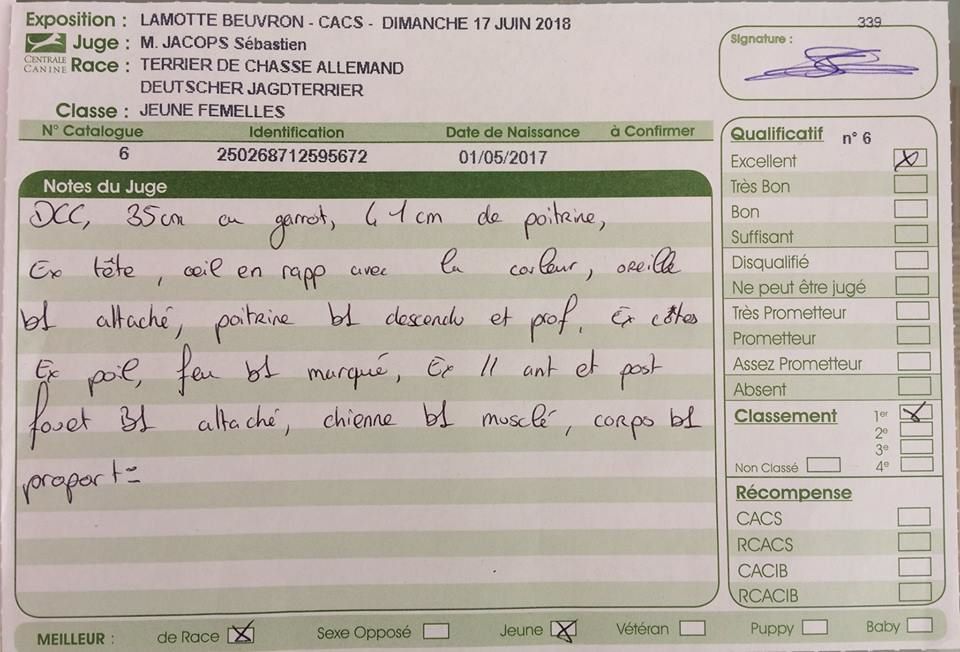 Exposition : LAMOTTE BEUVRON - CACS - DIMANCHE 17 JUIN 2018
339
CENTRALE CANINE
Juge : M. JACOPS Sébastien
Race : TERRIER DE CHASSE ALLEMAND
DEUTSCHER JAGDTERRIER
Classe : JEUNE FEMELLES
Signature :
N° Catalogue Identification Date de Naissance à Confirmer
6 250268712595672 01/05/2017
Notes du Juge
DCC, 35cm au garrot, 41cm de poitrine,
Ex tête, œil en rapp avec la couleur, oreille
b1 attaché, poitrine b1 descendu et prof, Ex côtes
Ex poil, feu b1 marqué, Ex // ant et post
fouet B1 attaché, chienne b1 musclé, corps b1
proport=
Qualificatif n° 6
Excellent X
Très Bon
Bon
Suffisant
Disqualifié
Ne peut être jugé
Très Prometteur
Prometteur
Assez Prometteur
Absent
Classement 1er X
2e
3e
Non Classé 4e
Récompense
CACS
RCACS
CACIB
RCACIB
MEILLEUR : de Race X Sexe Opposé Jeune X Vétéran Puppy Baby